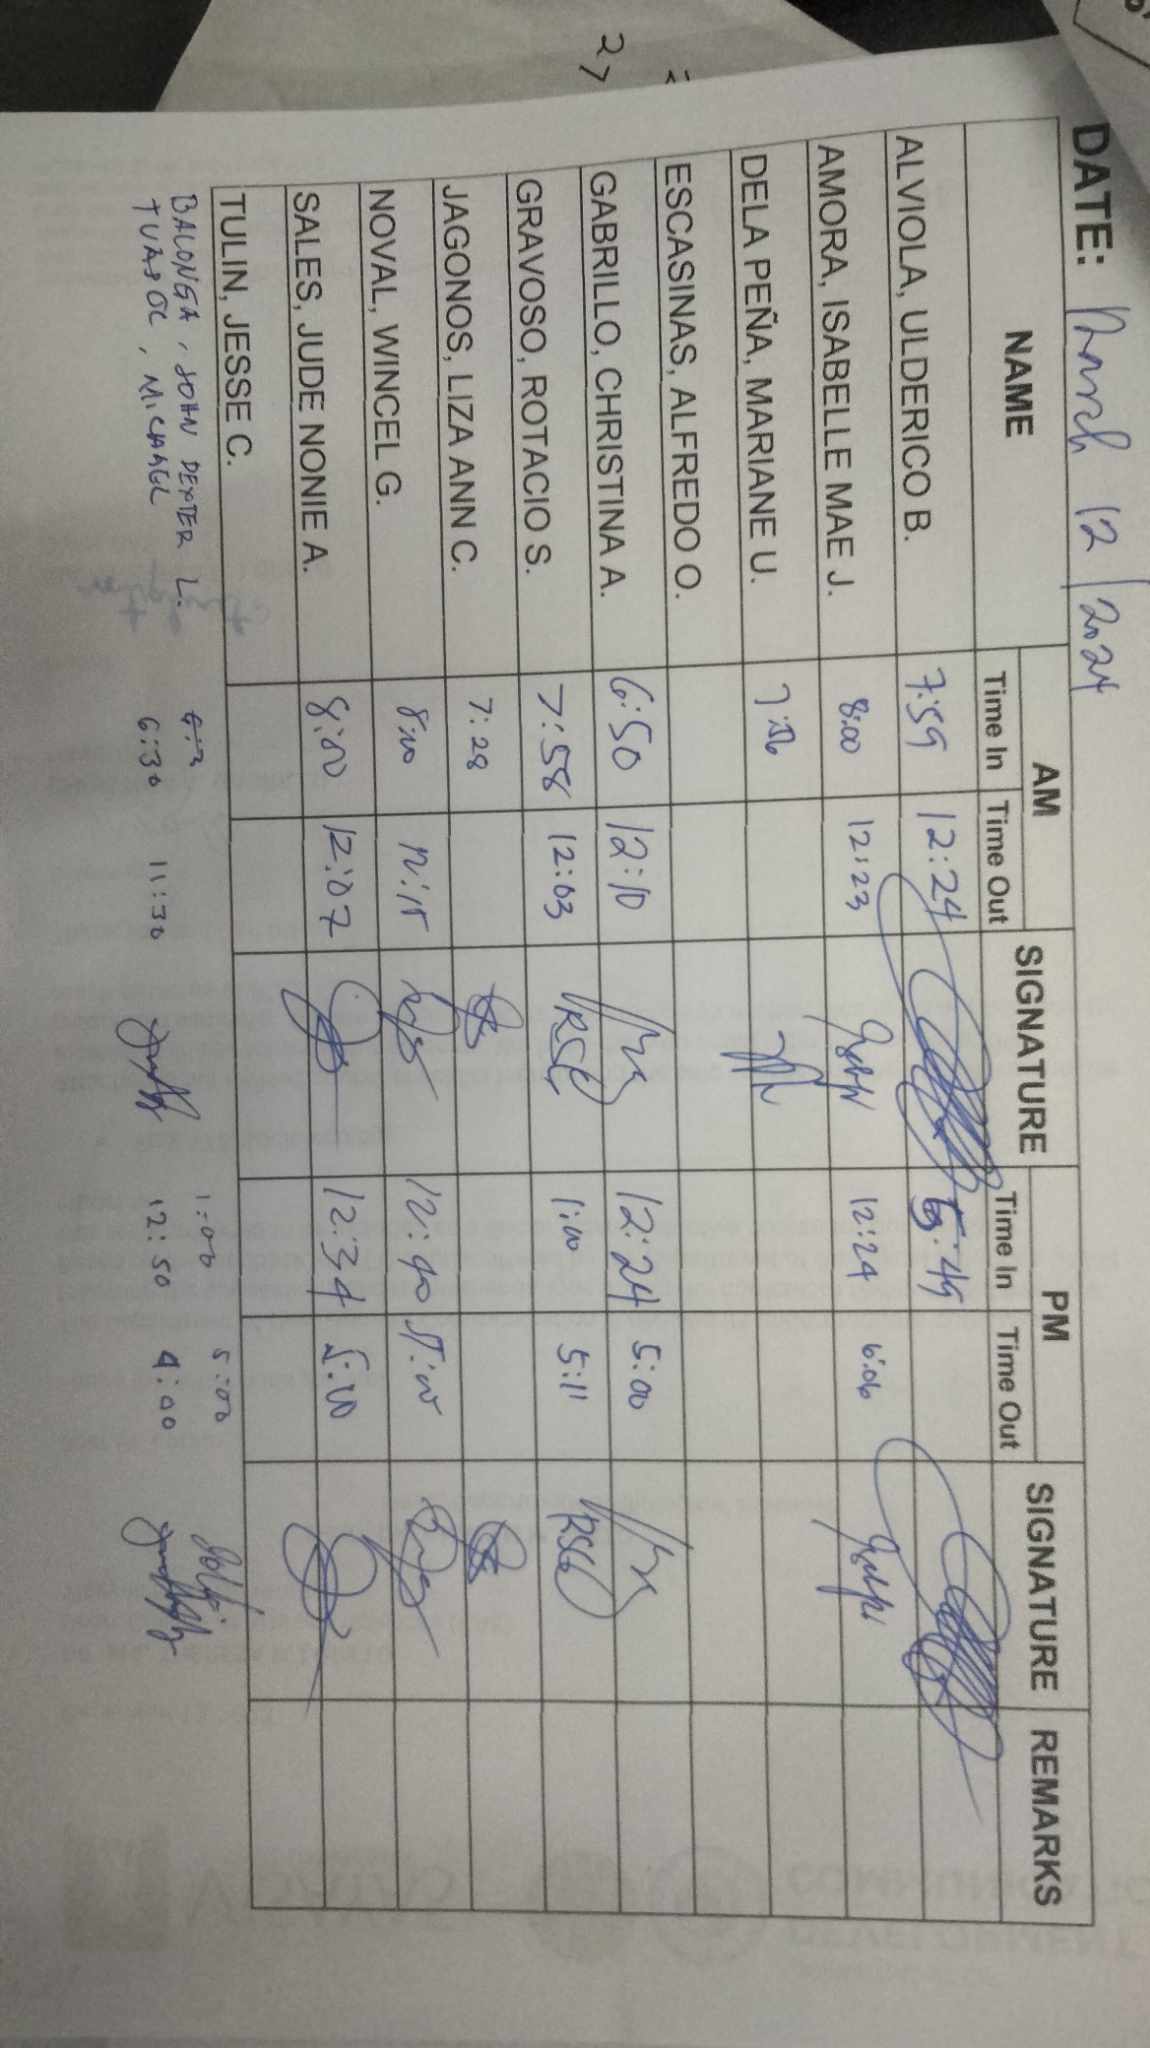 DATE: March 12/2024
NAME AM SIGNATURE PM SIGNATURE REMARKS
Time In Time Out Time In Time Out
ALVIOLA, ULDERICO B. 7:59 12:24
AMORA, ISABELLE MAE J. 8:00 12:23 12:24 6:06
DELA PEÑA, MARIANE U.
ESCASINAS, ALFREDO O.
GABRILLO, CHRISTINA A. 6:50 12:10 12:24 5:00
GRAVOSO, ROTACIO S. 7:58 12:03 RSG 1:00 5:11 RSG
JAGONOS, LIZA ANN C. 7:28
NOVAL, WINCEL G. 8:00 12:15 12:40 5:00
SALES, JUDE NONIE A. 8:00 12:07 12:34 5:00
TULIN, JESSE C.
BALONGA, JOHN DEXTER L. 1:00 5:00
TUASOC, MICHAEL 6:30 11:30 12:50 4:00